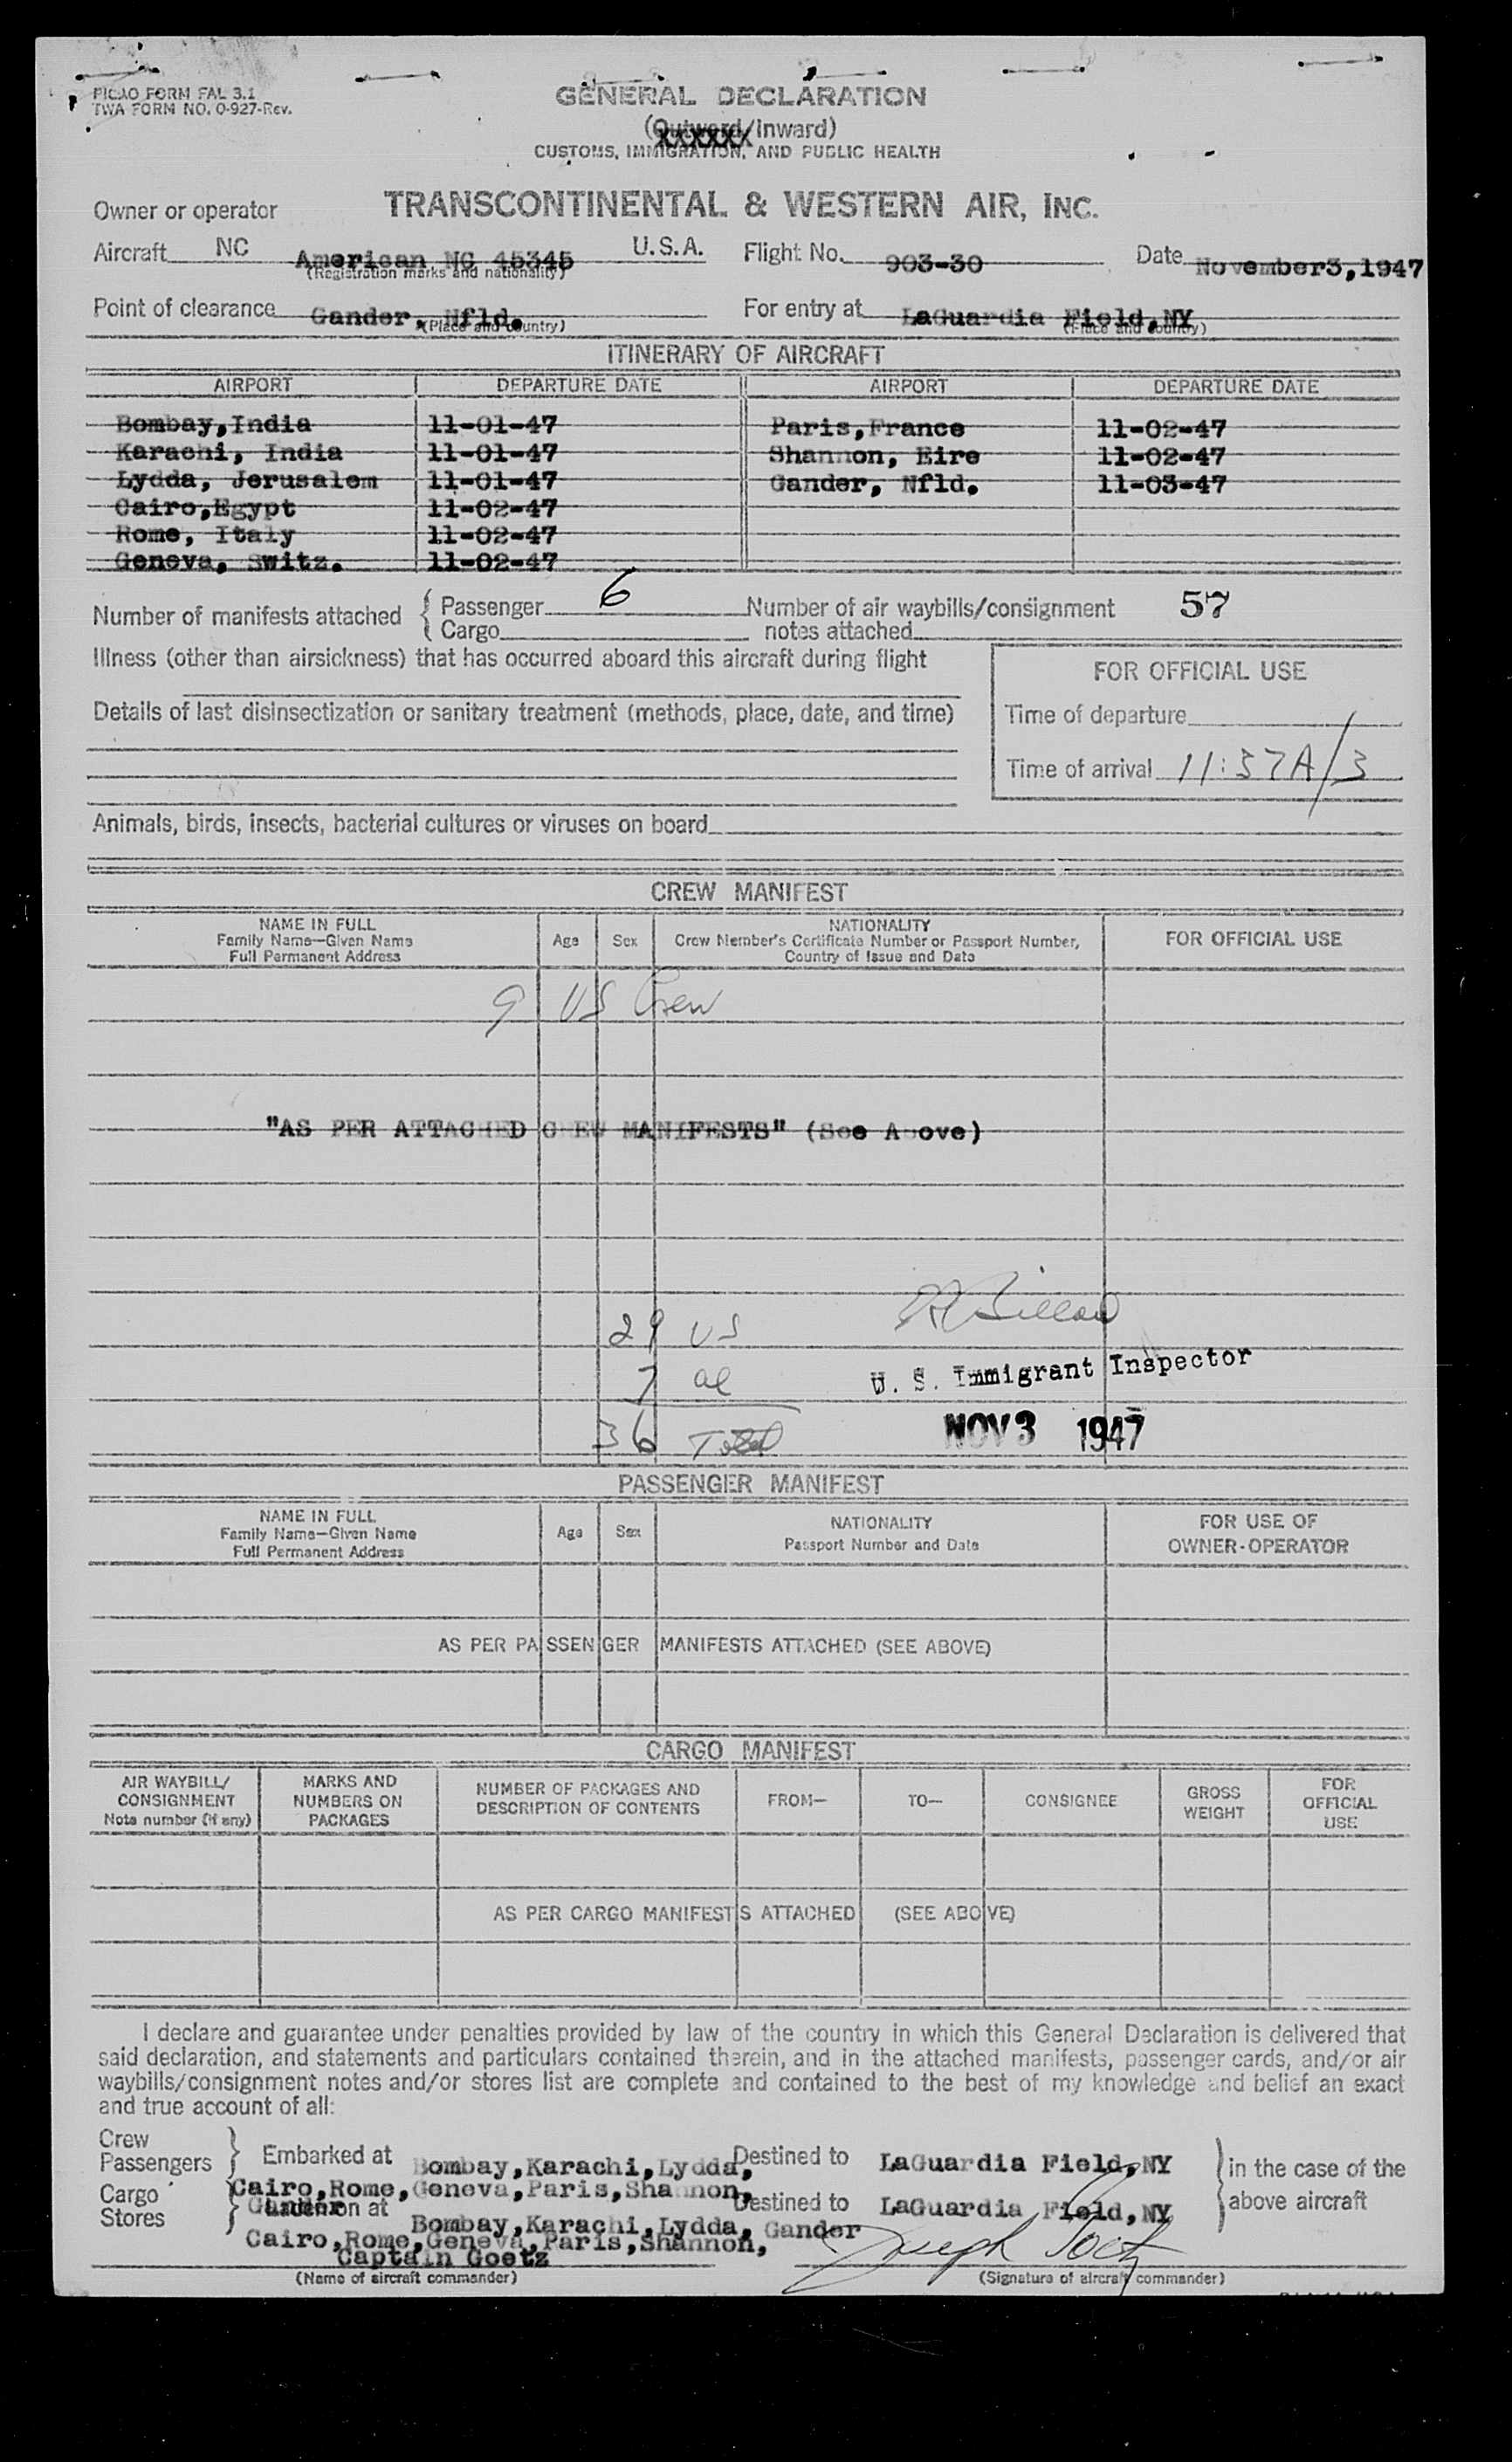 PICAO FORM FAL 3.1
TWA FORM NO. O-927-Rev.
GENERAL DECLARATION
(Outward/Inward)
CUSTOMS, IMMIGRATION, AND PUBLIC HEALTH
Owner or operator TRANSCONTINENTAL & WESTERN AIR, INC.
Aircraft NC American NC 45345 U.S.A. Flight No. 903-30 Date November3,1947
(Registration marks and nationality)
Point of clearance Gander, Nfld. For entry at LaGuardia Field,NY
(Place and country) (Place and country)
ITINERARY OF AIRCRAFT
AIRPORT DEPARTURE DATE AIRPORT DEPARTURE DATE
Bombay,India 11-01-47 Paris,France 11-02-47
Karachi, India 11-01-47 Shannon, Eire 11-02-47
Lydda, Jerusalem 11-01-47 Gander, Nfld. 11-03-47
Cairo,Egypt 11-02-47
Rome, Italy 11-02-47
Geneva, Switz. 11-02-47
Number of manifests attached { Passenger 6 Number of air waybills/consignment 57
Cargo notes attached
Illness (other than airsickness) that has occurred aboard this aircraft during flight
FOR OFFICIAL USE
Details of last disinsectization or sanitary treatment (methods, place, date, and time)
Time of departure
Time of arrival 11:37A/3
Animals, birds, insects, bacterial cultures or viruses on board
CREW MANIFEST
NAME IN FULL
Family Name—Given Name
Full Permanent Address
Age Sex
NATIONALITY
Crew Member's Certificate Number or Passport Number,
Country of Issue and Date
FOR OFFICIAL USE
9 US Crew
"AS PER ATTACHED CREW MANIFESTS" (See Above)
29 US
7 al
U. S. Immigrant Inspector
36 Total
NOV 3 1947
PASSENGER MANIFEST
NAME IN FULL
Family Name—Given Name
Full Permanent Address
Age Sex
NATIONALITY
Passport Number and Date
FOR USE OF
OWNER-OPERATOR
AS PER PASSENGER MANIFESTS ATTACHED (SEE ABOVE)
CARGO MANIFEST
AIR WAYBILL/
CONSIGNMENT
Note number (if any)
MARKS AND
NUMBERS ON
PACKAGES
NUMBER OF PACKAGES AND
DESCRIPTION OF CONTENTS
FROM—
TO—
CONSIGNEE
GROSS
WEIGHT
FOR
OFFICIAL
USE
AS PER CARGO MANIFESTS ATTACHED (SEE ABOVE)
I declare and guarantee under penalties provided by law of the country in which this General Declaration is delivered that
said declaration, and statements and particulars contained therein, and in the attached manifests, passenger cards, and/or air
waybills/consignment notes and/or stores list are complete and contained to the best of my knowledge and belief an exact
and true account of all:
Crew
Passengers } Embarked at Bombay,Karachi,Lydda, Destined to LaGuardia Field,NY } in the case of the
Cairo,Rome,Geneva,Paris,Shannon,
Cargo
Stores } Gander Laden on at Destined to LaGuardia Field,NY above aircraft
Bombay,Karachi,Lydda, Gander
Cairo,Rome,Geneva,Paris,Shannon,
Captain Goetz Joseph Goetz
(Name of aircraft commander) (Signature of aircraft commander)